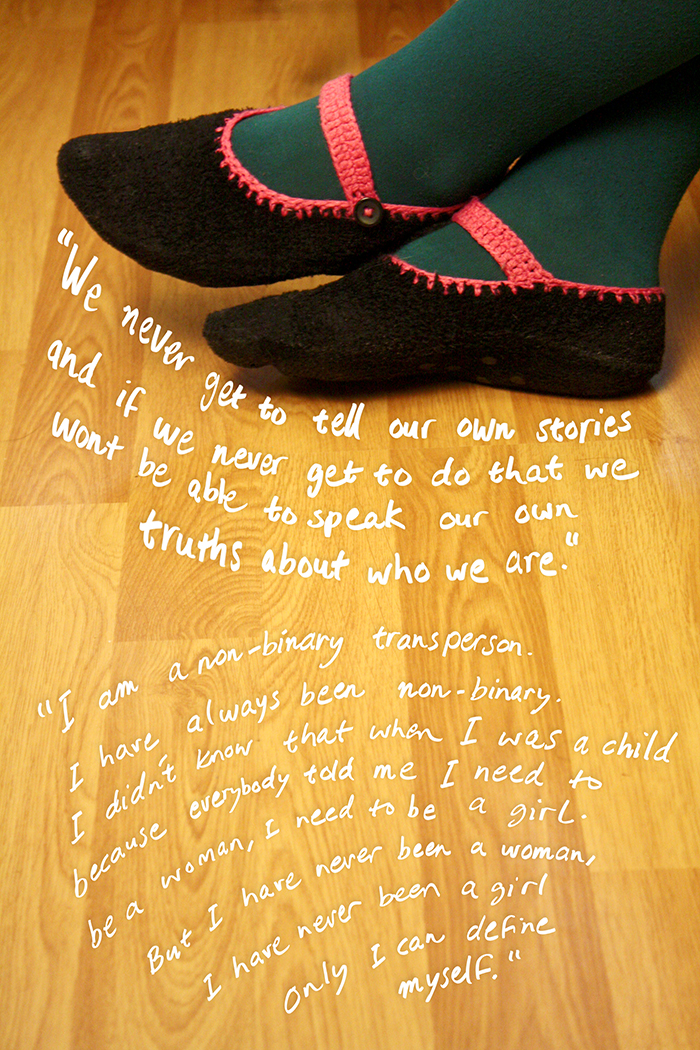 "We never get to tell our own stories
and if we never get to do that we
wont be able to speak our own
truths about who we are."
"I am a non-binary transperson.
I have always been non-binary.
I didn't know that when I was a child
because everybody told me I need to
be a woman, I need to be a girl.
But I have never been a woman,
I have never been a girl
only I can define
myself."